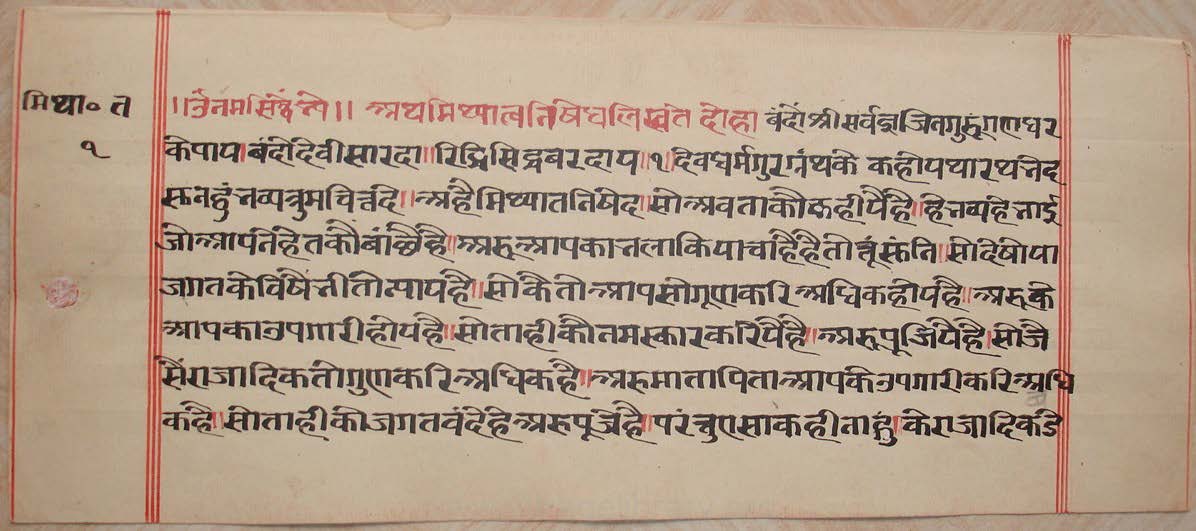 मिथ्या० त
१
॥ॐ नम सिद्धेभ्यो॥ अथ मिथ्यात्वनिषेध लिख्यते दोहा बंदों श्री सर्वज्ञ जिन गुरु गणधर
के पाय। बंदो देवी सारदा॥ रिद्धि सिद्ध बर दाय॥१॥ देव धर्म गुर ग्रंथ के कही यथारथ भेद
अहै मिथ्यात निषेद॥ सो अब ताकौ कहीयै है॥ हे भव्य हे भाई
जो आप नें हेत कौ बांछै है॥ अरु आप का भला किया चाहै है तो तूं सुनि॥ सो देषो या
जगत के विषै नीती न्याय है॥ सो कै तो आप सो गूण करि अधिक होय है॥ अरु के
आप का उपगारी होय है॥ सो ताही कौ नमस्कार करियै है॥ अरु पूजियै है। सो जै
सें राजादिक तो गुण करि अधिक है॥ अरु माता पिता आप के उपगारी करि अधि
क है॥ सो ताही को जगत वंदे है अरु पूजे है॥ परंतु एसा कही नाहीं॥ के राजादिक